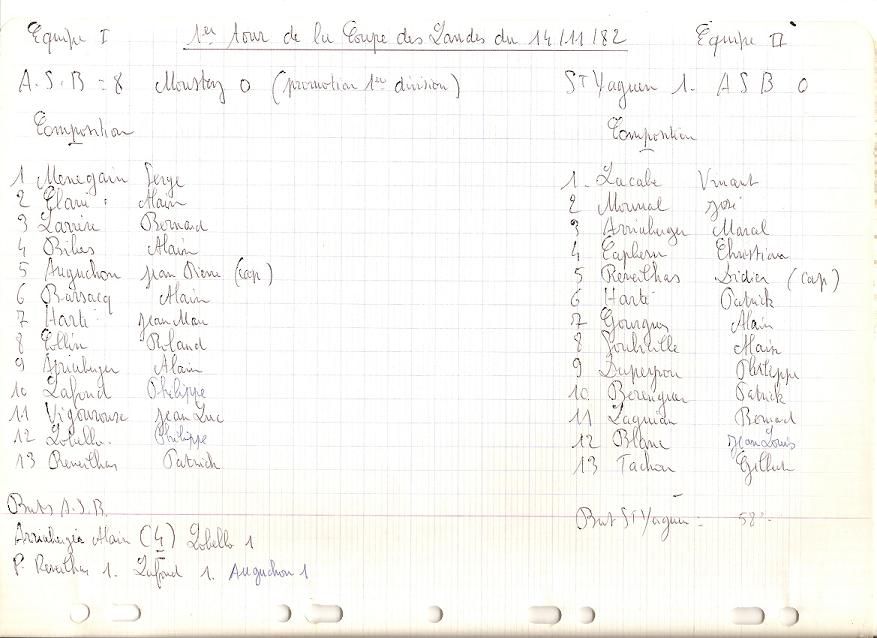 Equipe I 1er tour de la Coupe des Landes du 14/11/82 Equipe II
A.S.B = 8 Moustey 0 (promotion 1ère division)
St Yaguen 1. A S B 0
Composition
1 Menegain Serge
2 Clavé Alain
3 Larrere Bernard
4 Bibes Alain
5 Auguchon Jean Pierre (cap)
6 Barsacq Alain
7 Harté Jean Marc
8 Collin Roland
9 Alain
10 Lafond Philippe
11 Vigouroux Jean Luc
12 Lobello. Philippe
13 Reveilhas Patrick
Buts A.S.B.
Alain (4) Lobello 1
P. Reveilhas 1. Lafond 1. Auguchon 1
Composition
1. Lacabe Vincent
2 José
3 Marcal
4 Capbern Christian
5 Reveilhas Didier (cap)
6 Harté Patrick
7 Gourgues Alain
8 Alain
9 Duperrou Philippe
10. Berenguer Patrick
11 Laguian Bernard
12 Blanc Jean Louis
13 Tachon Gilbert
But St Yaguen - 58'